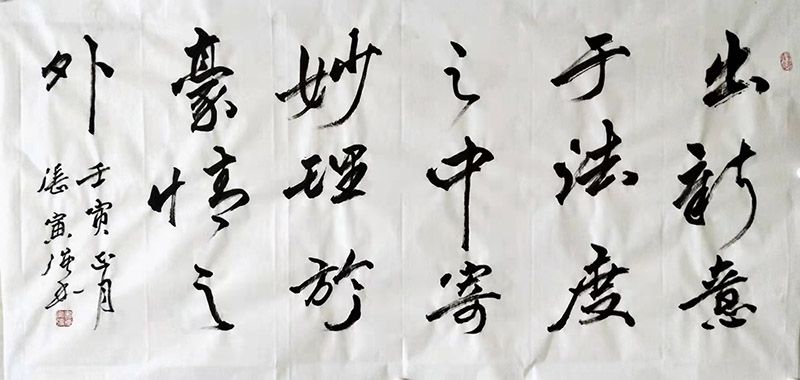 出新意
于法度
之中寄
妙理於
豪情之
外
壬寅正月